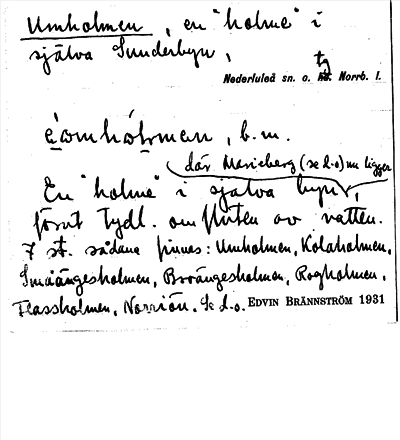 Umholmen, en "holme" i
själva Sunderbyn,
Nederluleå sn. o. tg Norrb. l.
éomhólmen, b.m.
där Marieberg (se d.o) nu ligger
En "holme" i själva byn,
förut tydl. omfluten av vatten.
7 st. sådana finnes: Umholmen, Kolaholmen,
Småängesholmen, Broängesholmen, Rogholmen,
Flassholmen, Norriön. Se d.o. EDVIN BRÄNNSTRÖM 1931